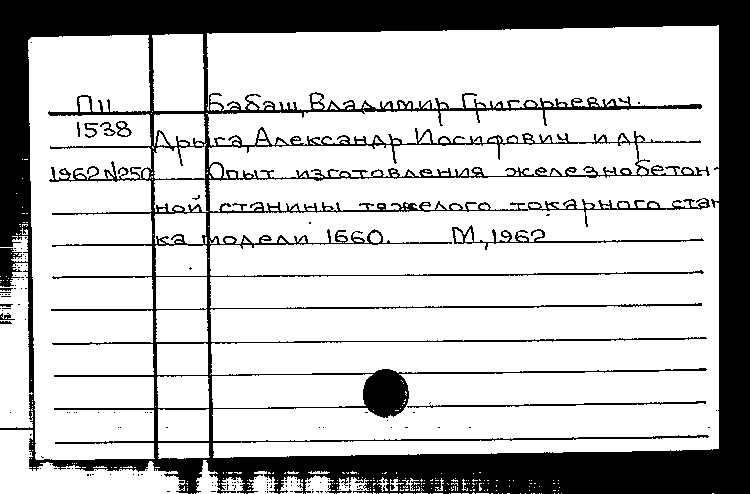 П11 Бабаш, Владимир Григорьевич.
1538 Дрыга, Александр Иосифович и др.
1962 N250 Опыт изготовления железнобетон-
ной станины тяжелого токарного стан
ка модели 1660. М., 1962